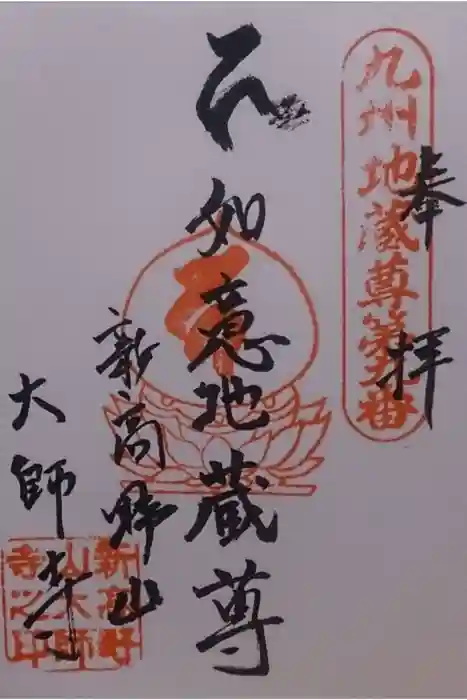 奉拝
九州地蔵尊第九番
如意地蔵尊
新高野山
大師寺
新高野
山大師
寺之印